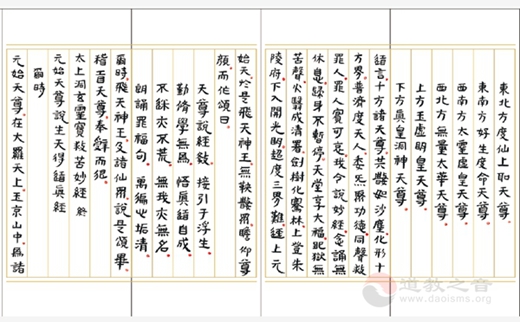 東北方度仙上聖天尊
東南方好生度命天尊
西南方太靈虛皇天尊
西北方無量太華天尊
上方玉虛明皇天尊
下方真皇洞神天尊
語言十方諸天尊其數如沙塵化形十
方界普濟度天人委炁聚功德同聲救
罪人罪人實可哀我今說妙經念誦無
休息歸身不暫停天堂享大福地獄無
苦聲火翳成清暑劍樹化騫林上登朱
陵府下入開光門超度三界難徑上元
始天於是飛天神王無鞅數眾瞻仰尊
顏而作頌曰
天尊說經教 接引于浮生
勤修學無為 悟真道自成
不迷亦不荒 無我亦無名
朗誦罪福句 萬遍心垢清
爾時飛天神王及諸仙眾說是頌畢
稽首天尊奉辭而退
太上洞玄靈寶救苦妙經 終
元始天尊說生天得道真經
爾時
元始天尊在大羅天上玉京山中為諸
道教之音
www.daoisms.org